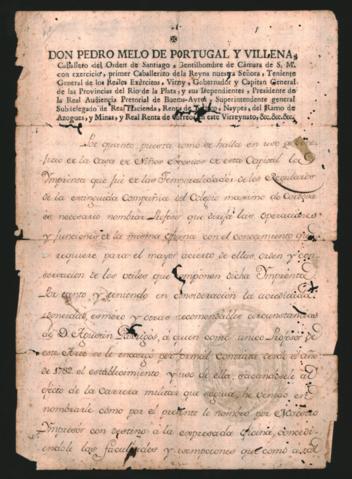 DON PEDRO MELO DE PORTUGAL Y VILLENA,
Caballero del Orden de Santiago, Gentilhombre de Cámara de S. M.
con exercicio, primer Caballerizo de la Reyna nuestra Señora, Teniente
General de los Reales Exércitos, Virey, Gobernador y Capitan General
de las Provincias del Rio de la Plata, y sus Dependientes, Presidente de
la Real Audiencia Pretorial de Buenos-Ayres, Superintendente general
Subdelegado de Real Hacienda, Rentas de Tabaco, Naypes, del Ramo de
Azogues, y Minas, y Real Renta de Correos en este Vireynato, &c.&c.&c.
Por quanto, puesta como se halla en uso
de la Casa de Niños Expositos de esta Capital la
Imprenta que fué de las Temporalidades de los Regulares
de la extinguida Compañia del Colegio maximo de Cordova
es necesario nombrar Profesor que dirija las operaciones
y funciones de la misma oficina con el conocimiento que
se requiere para el mayor acierto de ellas, orden y
conservacion de los utiles que componen dicha Imprenta
Por tanto, y teniendo en consideracion la acreditada
esmero y otras recomendables circunstancias
de D. Agustin Garrigós, a quien como unico Profesor de
este Arte se le encargó por formal Contrata desde el año
de 1782 el establecimiento y uso de ella, sacandole al
efecto de la carrera militar que seguia, he venido en
nombrarle como por el presente le nombro por Maestro
Impresor con destino a la expresada oficina, concedi-
endole las facultades y exempciones que como a tal